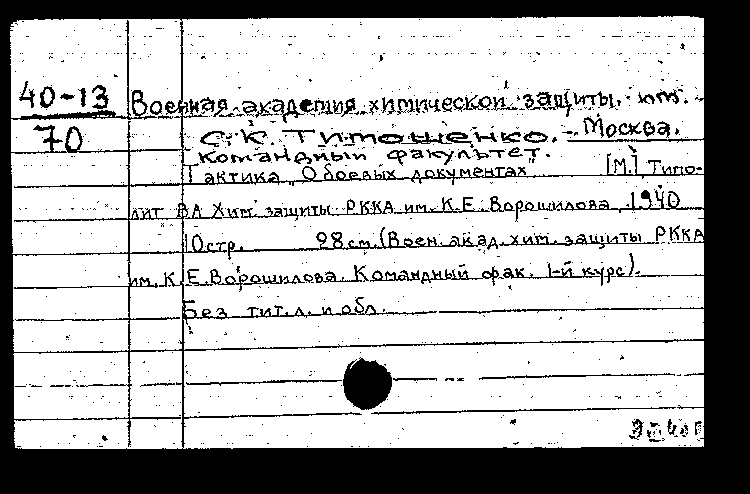 40-13 Военная академия химической защиты им.
70 С.К. Тимошенко. - Москва.
Командный факультет.
Тактика. О боевых документах [М.], Типо-
лит ВА Хим. защиты РККА им. К.Е. Ворошилова, 1940
10 стр. 28 см. (Воен. акад. хим. защиты РККА
им. К.Е. Ворошилова. Командный фак. 1-й курс).
Без тит. л. и обл.